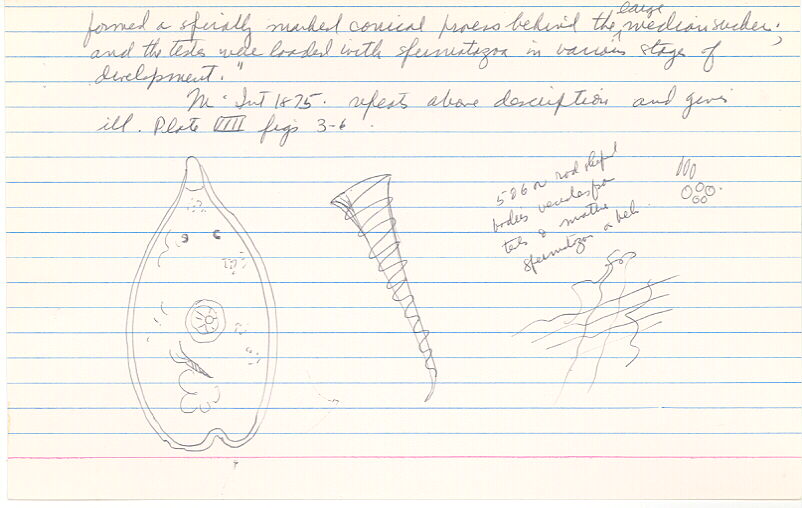 formed a spirally marked conical process behind the large median sucker;
and the testes were loaded with spermatozoa in various stages of
development."
McInt 1875. repeats above description and gives
ill. Plate VIII figs 3-6.
rod shaped
bodies
testes & mature
spermatozoa